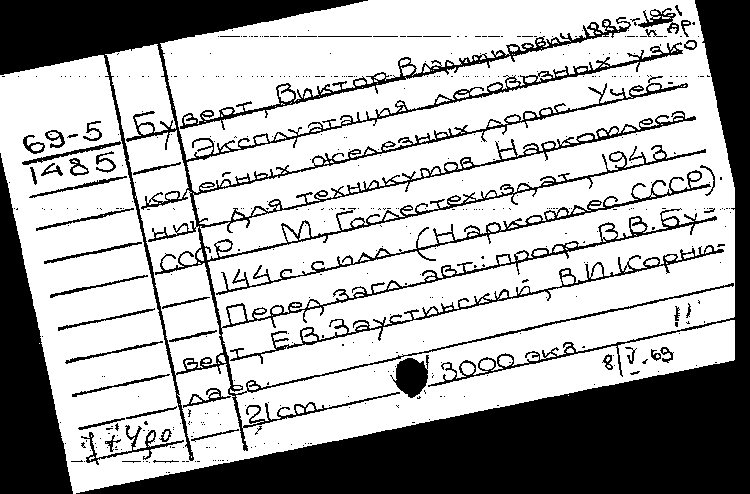 69-5
1485
Буверт, Виктор Владимирович, 1885-1961
и др.
Эксплуатация лесовозных узко
колейных железных дорог. Учеб-
ник для техникумов Наркомлеса
СССР. М., Гослестехиздат, 1943.
144 с. с илл. (Наркомлес СССР).
Перед загл. авт.: проф. В.В. Бу-
верт, Е.В. Заустинский, В.И. Корни-
лаев.
21 см. 3000 экз.
8/V-69